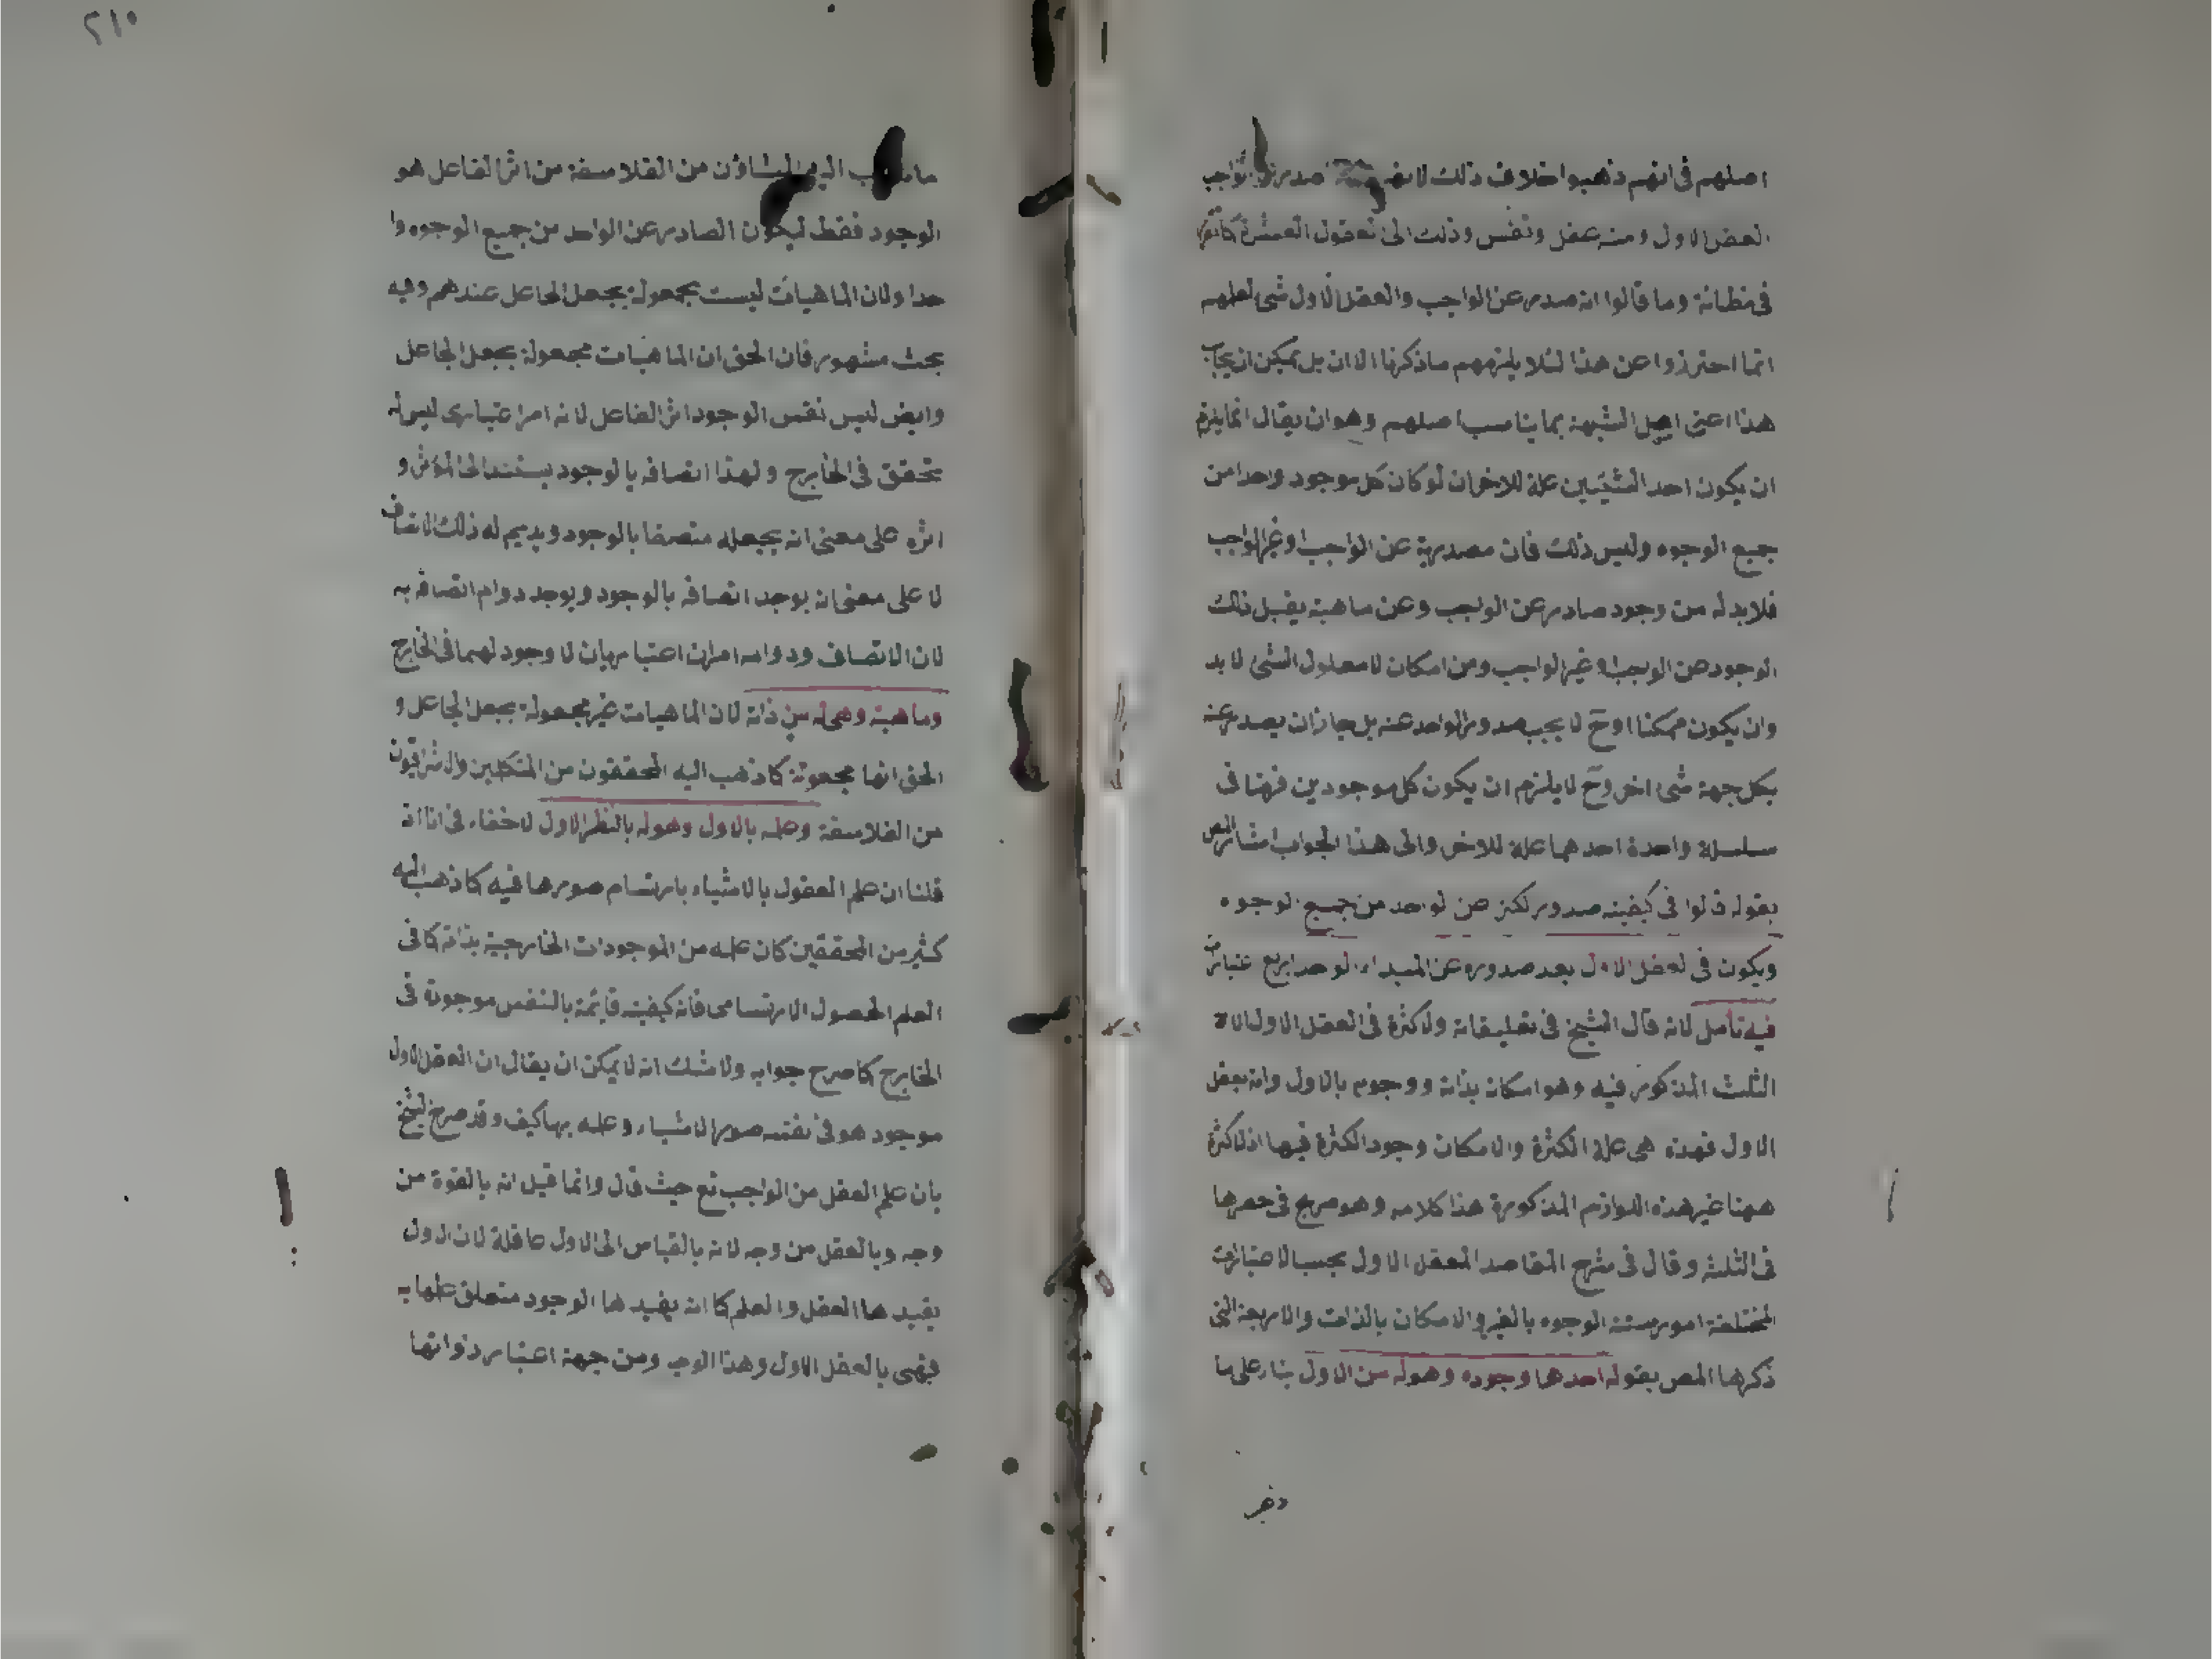 اصلهم فى انهم ذهبوا خلاف ذلك صدر
العقل الاول ومنه عقل ونفس وذلك الى العقول العشرة
فى مظانه وما قالوا انه صدر عن الواجب والعقل الاول شئ لعلهم
انما احترزوا عن هذا لئلا يلزمهم ما ذكرنا الا ان بل يمكن ان يجاب
هذا اعنى اصل الشبهة بما يناسب اصلهم وهو ان يقال انما يلزم
ان يكون احد الشيئين علة للاخر ان لو كان كل موجود واحدا من
جميع الوجوه وليس ذلك فان مصدرية عن الواجب او غير الواجب
فلابد له من وجود صادر عن الواجب وعن ماهية يقبل ذلك
الوجود من الواجب او غير الواجب ومن امكان لا معلول الشئ لا بد
وان يكون ممكنا اوح لا يجب صدور الواحد عنه بل جاز ان يصدر عنه
بكل جهة شئ اخر وح لا يلزم ان يكون كل موجودين فرضا فى
سلسلة واحدة احدهما علة للاخر والى هذا الجواب اشار المص
بقوله قالوا فى كيفية صدور الكثرة عن الواحد من جميع الوجوه
ويكون فى العقل الاول بعد صدوره عن المبداء الواحد اربع اعتبارات
فيه تأمل لانه قال الشيخ فى تعليقاته ولا كثرة فى العقل الاول الا
الثلث المذكور فيه وهو امكان بذاته ووجوبه بالاول وانه يعقل
الاول فهذه هى علة الكثرة والامكان وجود الكثرة فيها اذ لا كثرة
ههنا غير هذه اللوازم المذكورة هذا كلامه وهو صريح فى حصرها
فى الثلثة وقال فى شرح المقاصد العقل الاول بحسب الاعتبارات
المختلفة امور ستة الوجوه بالغير والامكان بالذات والاربعة التى
ذكرها المص بقوله احدها وجوده وهو له من الاول بناء على ما
٢١٥
المشاؤن من الفلاسفة من اثر الفاعل هو
الوجود فقط ليكون الصادر عن الواحد من جميع الوجوه وا
حدا ولان الماهيات ليست بمجعولة بجعل الجاعل عندهم وفيه
بحث مشهور فان الحق ان الماهيات مجعولة بجعل الجاعل
وايض ليس نفس الوجود اثر الفاعل لانه امر اعتبارى ليس له
تحقق فى الخارج ولهذا اتصافه بالوجود يستند الى المؤثر و
اثره على معنى انه يجعله متصفا بالوجود ويديم له ذلك الاتصاف
لا على معنى انه يوجد اتصافه بالوجود ويوجد دوام اتصافه به
لان الاتصاف ودوامه امران اعتباريان لا وجود لهما فى الخارج
وماهية وهى له من ذاته لان الماهيات غير مجعولة بجعل الجاعل و
الحق انها مجعولة كما ذهب اليه المحققون من المتكلمين والاشراقيون
من الفلاسفة وعلمه بالاول وهو له بالنظر الاول لا خفاء فى انا اذ
قلنا ان علم العقول بالاشياء بارتسام صورها فيه كما ذهب اليه
كثير من المحققين كان علمه من الموجودات الخارجية بذاته كما فى
العلم الحصول الارتسامى فانه كيفية قائمة بالنفس موجودة فى
الخارج كما صرح جوابه ولا شك انه لا يمكن ان يقال ان العقل الاول
موجود هو فى نفسه صور الاشياء وعلمه بها كيف وقد صرح الشيخ
بان علم العقل من الواجب تع حيث قال وانما قيل انه بالقوة من
وجه وبالعقل من وجه لانه بالقياس الى الاول عاقلة لان الاول
يفيدها العقل والعلم كما انه يفيدها الوجود متعلق علمها به
فهى بالعقل الاول وهذا الوجه ومن جهة اعتبار ذواتها